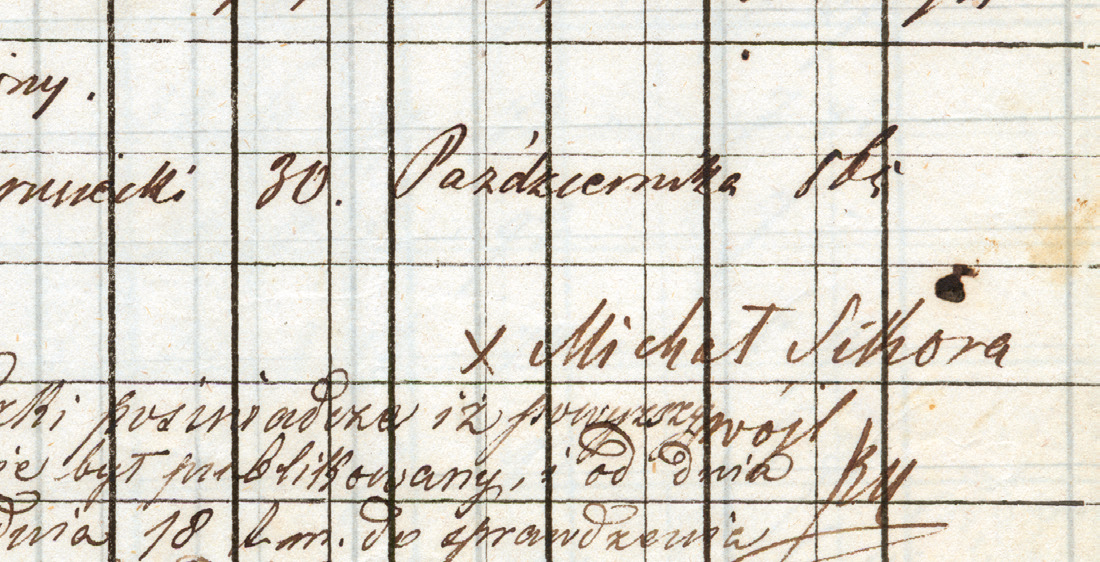 30. Października
x Michał Sikora
poświadcza iż powyższy wójt
był publikowany, i od dnia
dnia 18 b. m. do sprawdzenia